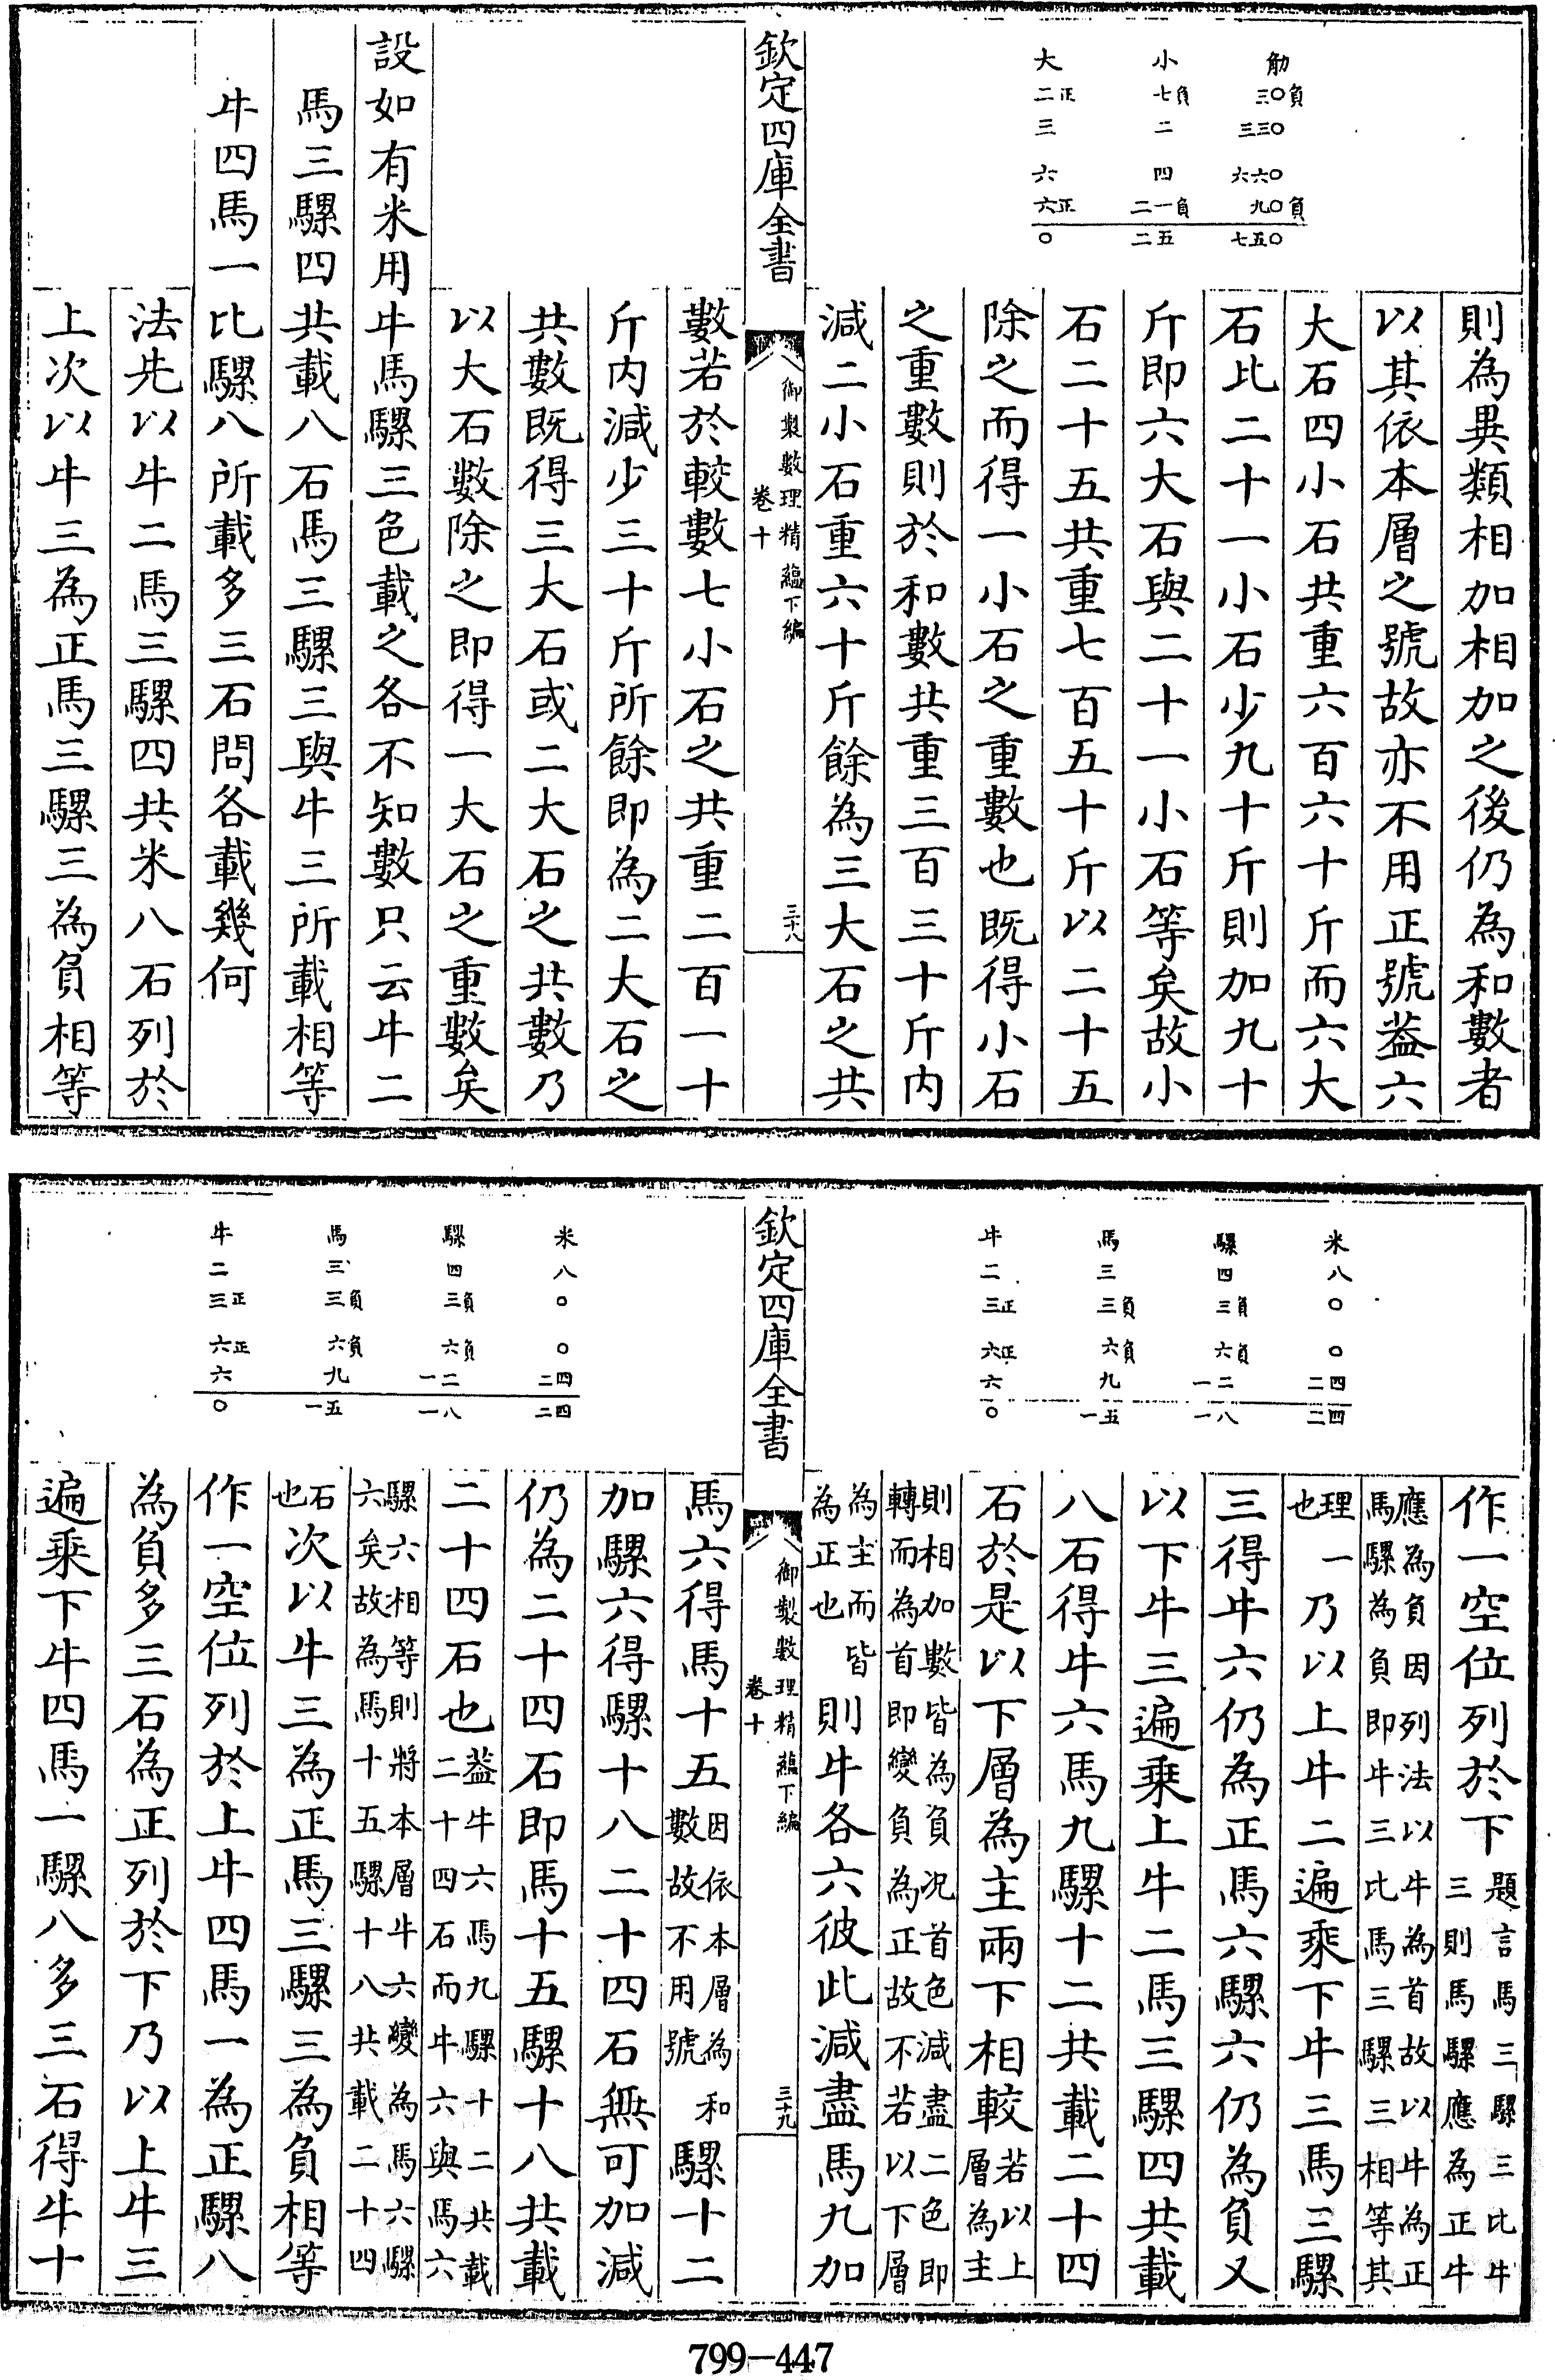 大 小 觔
二正 七負 三〇負
三 二 三三〇
六 四 六六〇
六正 二一負 九〇負
〇 二五 七五〇
則為異類相加相加之後仍為和數者
以其依本層之號故亦不用正號葢六
大石四小石共重六百六十斤而六大
石比二十一小石少九十斤則加九十
斤即六大石與二十一小石等矣故小
石二十五共重七百五十斤以二十五
除之而得一小石之重數也既得小石
之重數則於和數共重三百三十斤内
減二小石重六十斤餘為三大石之共
欽定四庫全書
御製數理精蘊下編
卷十
三十八
數若於較數七小石之共重二百一十
斤内減少三十斤所餘即為二大石之
共數既得三大石或二大石之共數乃
以大石數除之即得一大石之重數矣
設如有米用牛馬騾三色載之各不知數只云牛二
馬三騾四共載八石馬三騾三與牛三所載相等
牛四馬一比騾八所載多三石問各載幾何
法先以牛二馬三騾四共米八石列於
上次以牛三為正馬三騾三為負相等
牛 馬 騾 米
二 三 四 八
三正 三負 三負 〇
六正 六負 六負 〇
六 九 一二 二四
〇 一五 一八 二四
作一空位列於下題言馬三騾三比牛
三則馬騾應為正牛
應為負因列法以牛為首故以牛為正
馬騾為負即牛三比馬三騾三相等其
理
也一乃以上牛二遍乘下牛三馬三騾
三得牛六仍為正馬六騾六仍為負又
以下牛三遍乘上牛二馬三騾四共載
八石得牛六馬九騾十二共載二十四
石於是以下層為主兩下相較若以上
層為主
則相加數皆為負况首色減盡二色即
轉而為首即變負為正故不若以下層
為主而皆
為正也則牛各六彼此減盡馬九加
欽定四庫全書
御製數理精蘊下編
卷十
三十九
牛 馬 騾 米
二 三 四 八
三正 三負 三負 〇
六正 六負 六負 〇
六 九 一二 二四
〇 一五 一八 二四
馬六得馬十五因依本層為和
數故不用號騾十二
加騾六得騾十八二十四石無可加減
仍為二十四石即馬十五騾十八共載
二十四石也葢牛六馬九騾十二共載
二十四石而牛六與馬六
騾六相等則將本層牛六變為馬六騾
六矣故為馬十五騾十八共載二十四
石
也次以牛三為正馬三騾三為負相等
作一空位列於上牛四馬一為正騾八
為負多三石為正列於下乃以上牛三
遍乘下牛四馬一騾八多三石得牛十
799—447